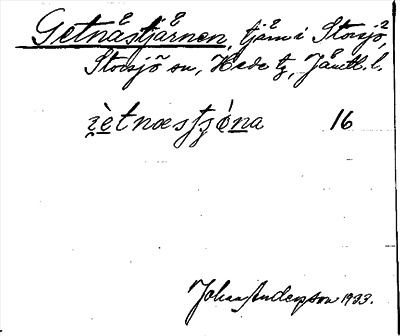 Getnåstjärnen, tjärn i Storsjö,
Storsjö sn, Hede tg, Jämtl. l.
i̯ètnœstjȯ̯na 16
Johan Anderson 1933.